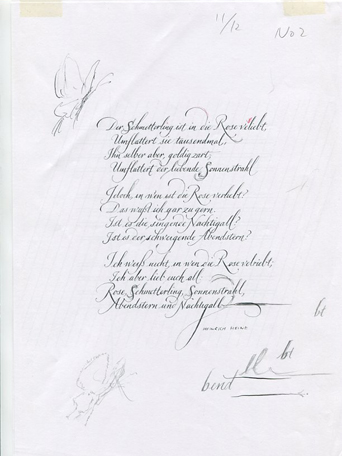 11/12 No 2
Der Schmetterling ist in die Rose verliebt,
Umflattert sie tausendmal,
Ihn selber aber, goldig zart,
Umflattert der liebende Sonnenstrahl
Jedoch, in wen ist die Rose verliebt?
Das wüßt ich gar zu gern.
Ist es die singende Nachtigall?
Ist es der schweigende Abendstern?
Ich weiß nicht, in wen die Rose verliebt,
Ich aber lieb euch all
Rose, Schmetterling, Sonnenstrahl,
Abendstern und Nachtigall
HEINRICH HEINE